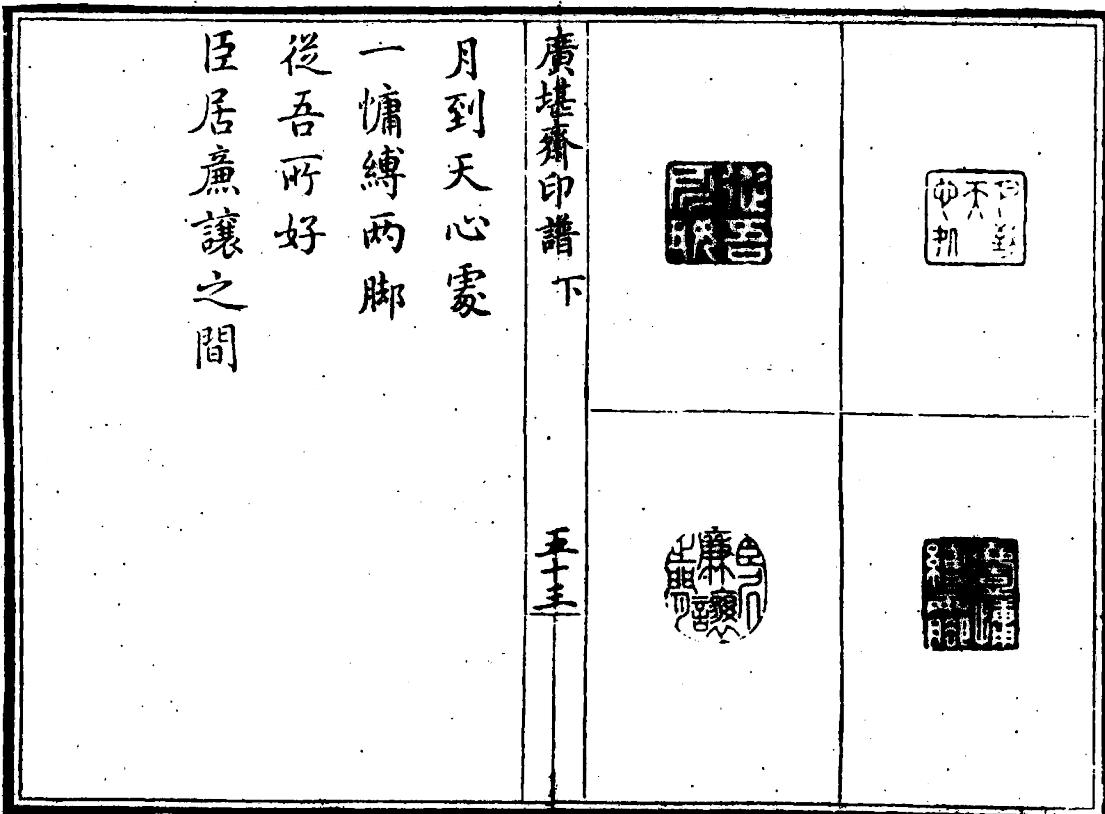 廣堪齋印譜 下
五十三
月到天心處
一慵縛两脚
從吾所好
臣居廉讓之間